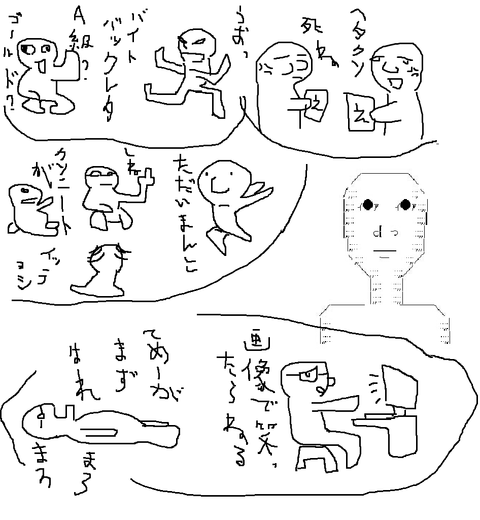 ヘタクソ
死ね
え
え
うおっ
バイト
バックレタ
A級?
ゴールド?
ただいまんこ
しね
クソニート
が
イッテ
ヨシ
画像で笑っ
たらねる
てめーが
まず
はれ
まろ
まろ